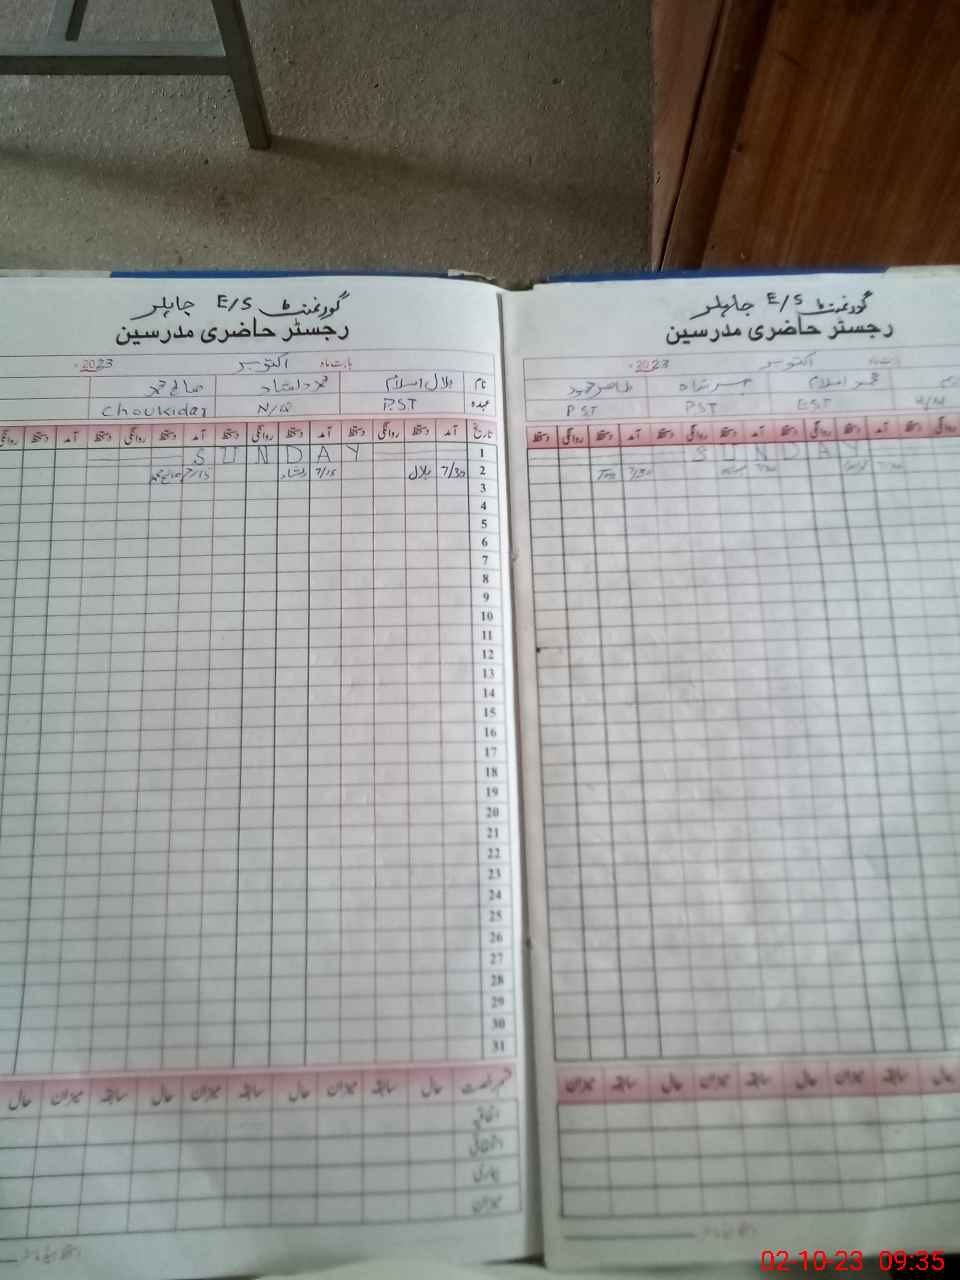 گورنمنٹ E/S جاہلر
رجسٹر حاضری مدرسین
بابت ماہ اکتوبر 2023
نام بلال اسلام محمد دلشاد صالح محمد
عہدہ PST N/Q Choukidar
تاریخ آمد دستخط روانگی دستخط آمد دستخط روانگی دستخط آمد دستخط روانگی دستخط آمد دستخط روانگی
1 SUNDAY
2 7/30 بلال 7/15 دلشاد 7/15 صالح محمد
3
4
5
6
7
8
9
10
11
12
13
14
15
16
17
18
19
20
21
22
23
24
25
26
27
28
29
30
31
حال میزان سابقہ حال میزان سابقہ حال میزان سابقہ حال
اتفاقیہ
بیماری
میزان
گورنمنٹ E/S جاہلر
رجسٹر حاضری مدرسین
بابت ماہ اکتوبر 2023
محمد اسلام طاہر محمود
EST PST PST
روانگی دستخط آمد دستخط روانگی دستخط آمد دستخط روانگی دستخط آمد دستخط روانگی دستخط
SUNDAY
7/30
حال سابقہ میزان حال سابقہ میزان حال سابقہ میزان
02-10-23 09:35